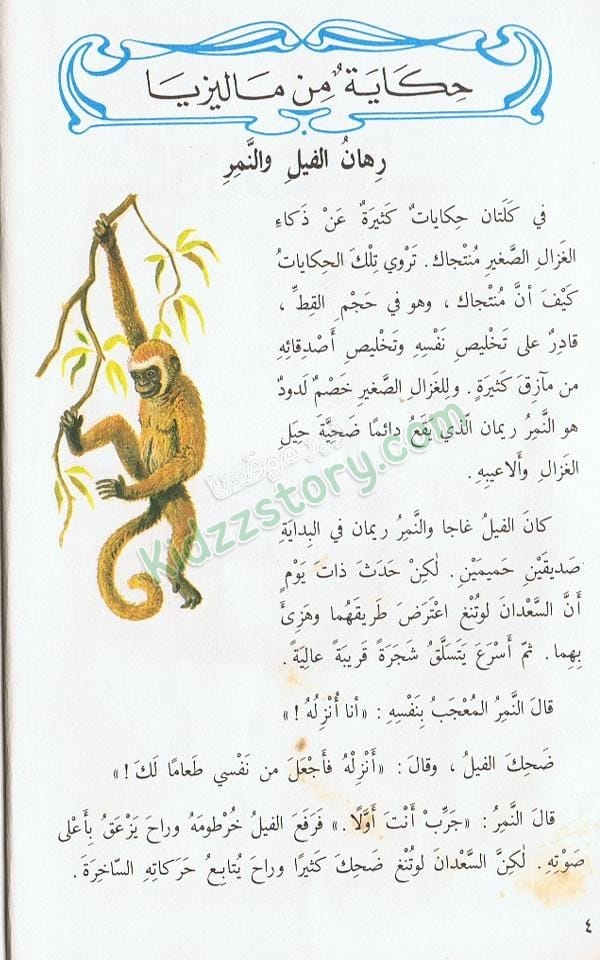 حِكَايَة مِن مَاليزيَا
رِهانُ الفيلِ والنَّمِرِ
في كَلَنتان حِكاياتٌ كَثيرَةٌ عَنْ ذَكاءِ
الغَزالِ الصَّغيرِ مُنْتجاك. تَرْوي تِلْكَ الحِكاياتُ
كَيْفَ أنَّ مُنْتجاك، وهو في حَجْمِ القِطِّ،
قادِرٌ على تَخْليصِ نَفْسِهِ وتَخْليصِ أَصْدقائِهِ
من مآزِقَ كَثيرَةٍ. ولِلغَزالِ الصَّغيرِ خَصْمٌ لَدودٌ
هو النَّمِرُ ريمان الَّذي يَقَعُ دائمًا ضَحِيَّةَ حِيَلِ
الغَزالِ وأَلاعيبِهِ.
كانَ الفيلُ غاجا والنَّمِرُ ريمان في البِدايَةِ
صَديقَيْنِ حَميمَيْنِ. لٰكِنْ حَدَثَ ذاتَ يَوْمٍ
أَنَّ السَّعْدانَ لوتُنْغ اعْتَرَضَ طَريقَهُما وهَزِئَ
بِهِما. ثمّ أَسْرَعَ يَتَسَلَّقُ شَجَرَةً قَريبَةً عالِيَةً.
قالَ النَّمِرُ المُعْجَبُ بِنَفْسِهِ: «أنا أُنْزِلُهُ!»
ضَحِكَ الفيلُ، وقالَ: «أَنْزِلْهُ فَأَجْعَلَ من نَفْسي طَعامًا لَكَ!»
قالَ النَّمِرُ: «جَرِّبْ أَنْتَ أَوَّلًا.» فَرَفَعَ الفيلُ خُرْطومَهُ وراحَ يَزْعَقُ بِأَعْلى
صَوْتِهِ. لٰكِنَّ السَّعْدانَ لوتُنْغ ضَحِكَ كَثيرًا وراحَ يُتابِعُ حَرَكاتِهِ السّاخِرَةَ.
Kidzzstory.com
٤